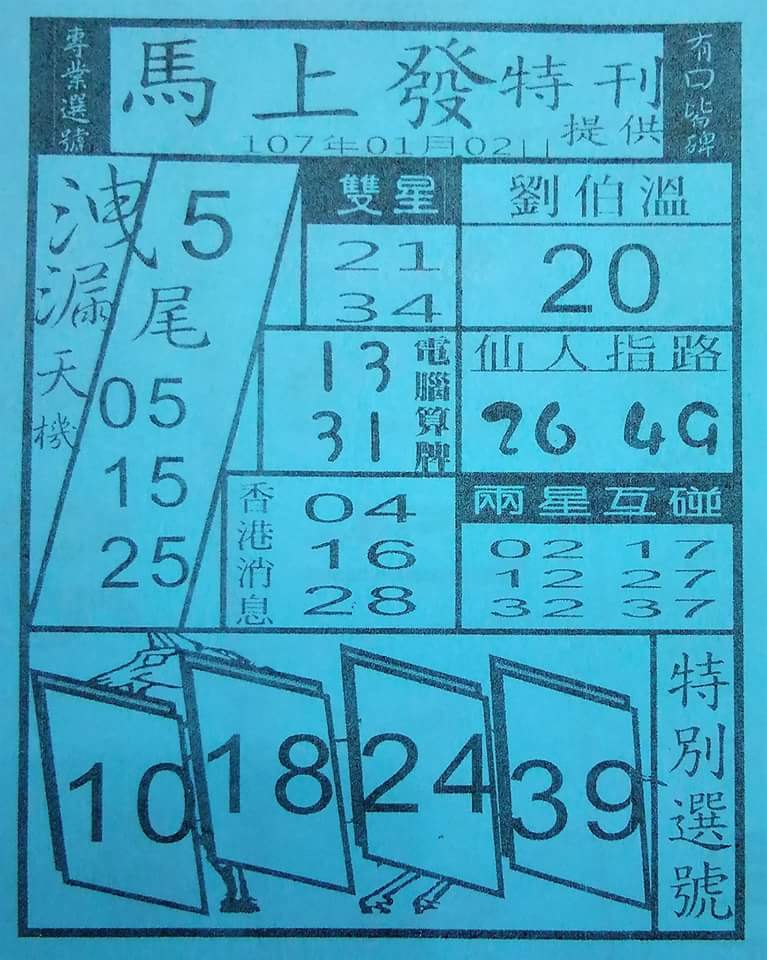 專業選號
馬上發特刊
提供
107年01月02日
有口皆碑
洩漏天機
5
尾
05
15
25
雙星
21
34
劉伯溫
20
13
31
電腦算牌
仙人指路
26 49
香港消息
04
16
28
兩星互碰
02 17
12 27
32 37
10 18 24 39
特別選號